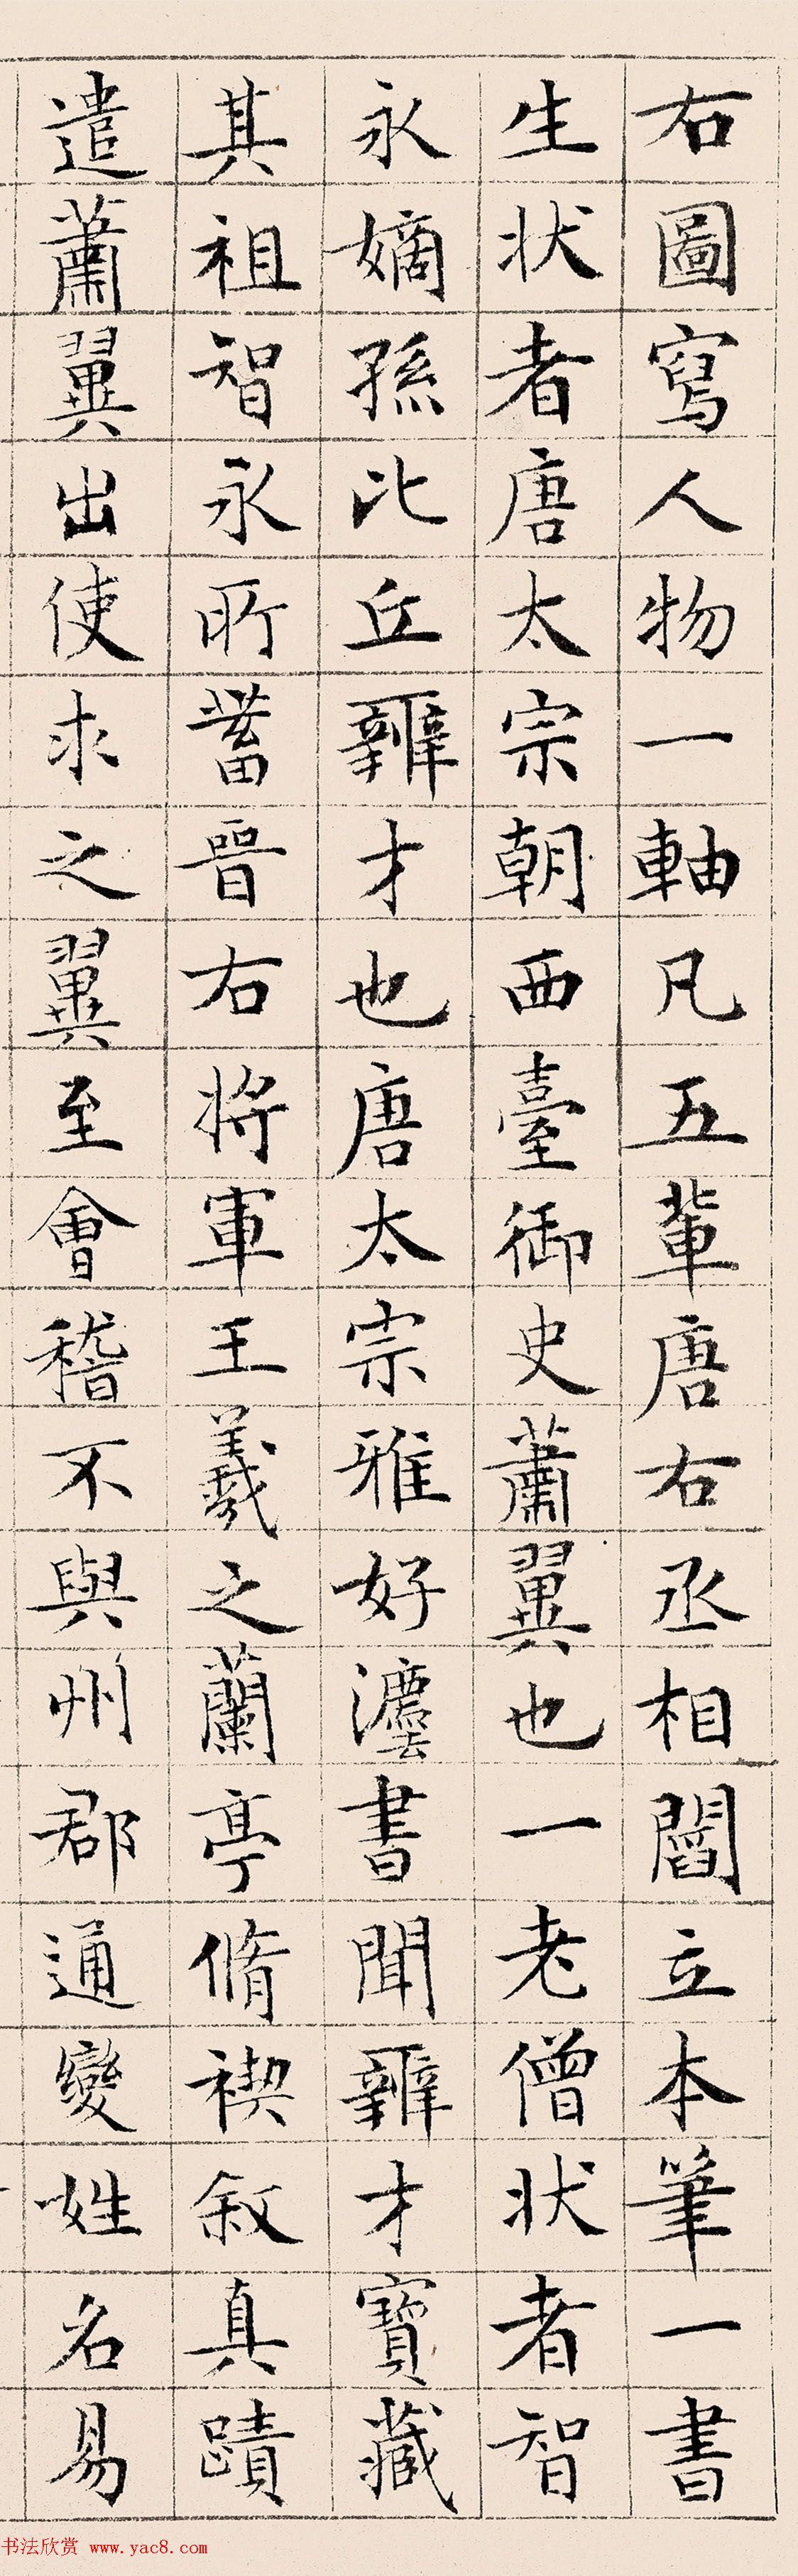 右圖寫人物一軸凡五輩唐右丞相閻立本筆一書
生狀者唐太宗朝西臺御史蕭翼也一老僧狀者智
永嫡孫比丘辨才也唐太宗雅好灋書聞辨才寶藏
其祖智永所蓄晉右將軍王羲之蘭亭脩禊敘真蹟
遣蕭翼出使求之翼至會稽不與州郡通變姓名易
书法欣赏 www.yac8.com